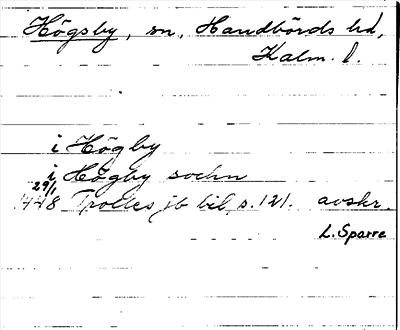 Högsby, sn., Handbörds hd,
Kalm. l.
i Högby
i Högby sochn
29/1
1448 Trolles jb bil, s. 121. avskr.
L. Sparre